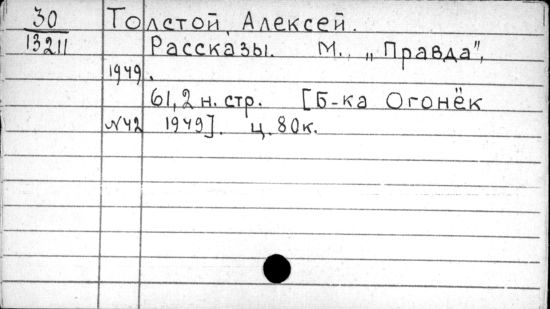 30 Толстой, Алексей.
13211 Рассказы. М., „Правда",
1949.
61,2 н. стр. [Б-ка Огонёк
№42 1949]. ц. 80к.